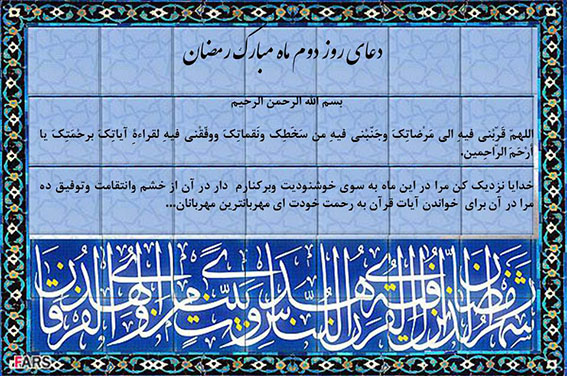 دعای روز دوم ماه مبارک رمضان
بسم الله الرحمن الرحیم
اللهمّ قَرّبْنی فیهِ الی مَرْضاتِکَ وجَنّبْنی فیهِ من سَخَطِک ونَقماتِکَ ووفّقْنی فیهِ لقراءةِ آیاتِکَ برحْمَتِکَ یا
أرْحَمَ الرّاحِمین.
خدایا نزدیک کن مرا در این ماه به سوی خوشنودیت وبرکنارم دار در آن از خشم وانتقامت وتوفیق ده
مرا در آن برای خواندن آیات قرآن به رحمت خودت ای مهربانترین مهربانان...
شهر رمضان الذی انزل فیه القرآن هدی للناس وبینت من الهدی والفرقان
FARS